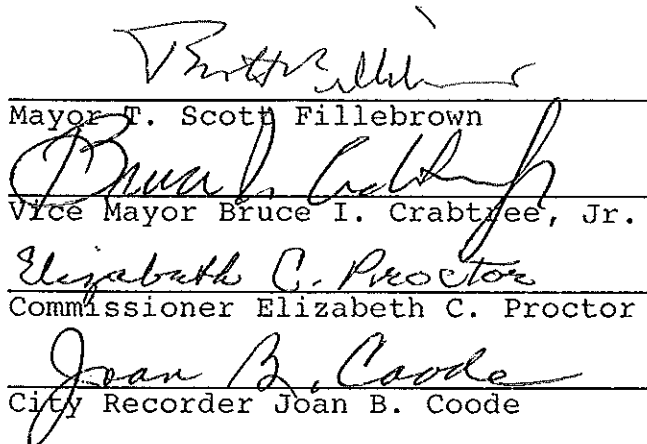 Mayor T. Scott Fillebrown
Bruce I. Crabtree, Jr.
Vice Mayor Bruce I. Crabtree, Jr.
Elizabeth C. Proctor
Commissioner Elizabeth C. Proctor
Joan B. Coode
City Recorder Joan B. Coode